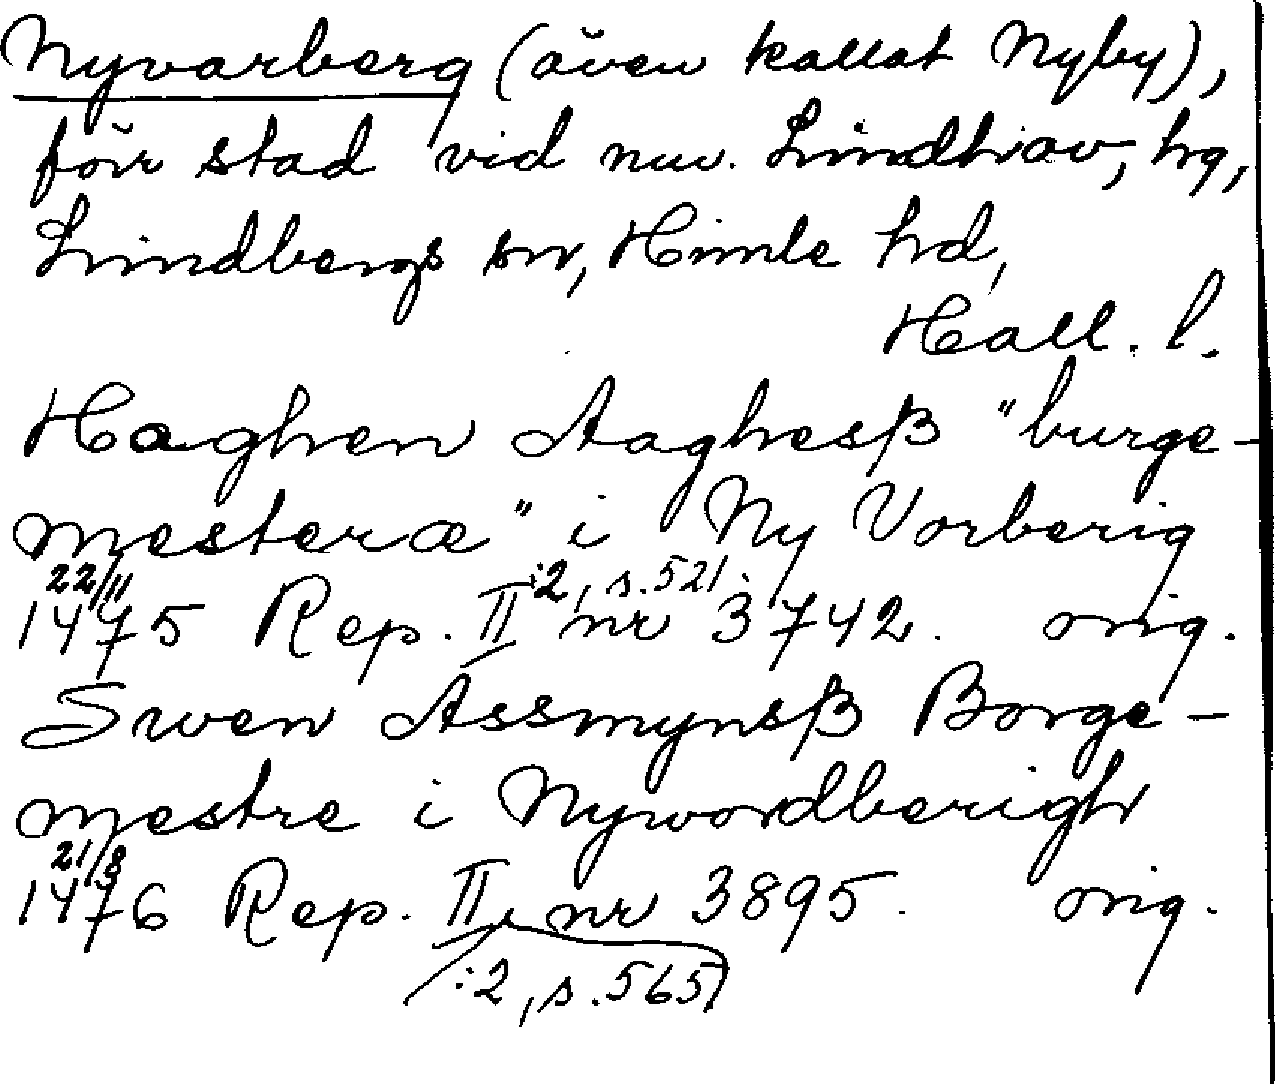 Nyvarberg (även kallat Nyby),
förr stad vid nuv. Lindhov, hg,
Lindbergs sn, Himle hd,
Hall. l.
Haghen Aaghesß "burge-
mesteræ" i Ny Vorberig
22/11 1475 Rep. II :2, s. 521 nr 3742. orig.
Swen Assmynsß Borge-
mestre i Nywordberigh
21/8 1476 Rep. II, nr 3895. orig.
:2, s. 565